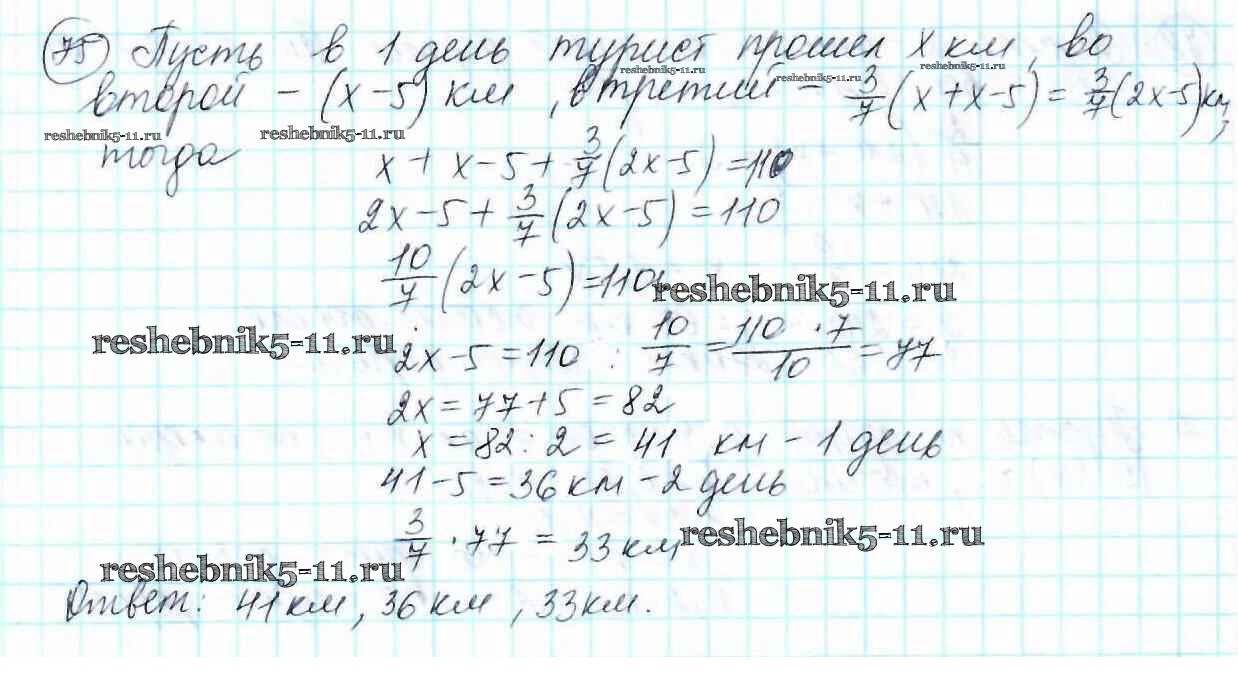 75 Пусть в 1 день турист прошел x км, во
reshebnik5-11.ru reshebnik5-11.ru
второй – (x-5) км, в третий – 3/7 (x+x-5) = 3/7 (2x-5) км,
reshebnik5-11.ru
reshebnik5-11.ru reshebnik5-11.ru
тогда
x + x - 5 + 3/7 (2x-5) = 110
2x - 5 + 3/7 (2x-5) = 110
10/7 (2x-5) = 110
reshebnik5-11.ru
reshebnik5-11.ru
2x - 5 = 110 : 10/7 = 110 · 7/10 = 77
2x = 77+5 = 82
x = 82 : 2 = 41 км - 1 день
41-5 = 36 км - 2 день
3/7 · 77 = 33 км
reshebnik5-11.ru
reshebnik5-11.ru
Ответ: 41 км, 36 км, 33 км.